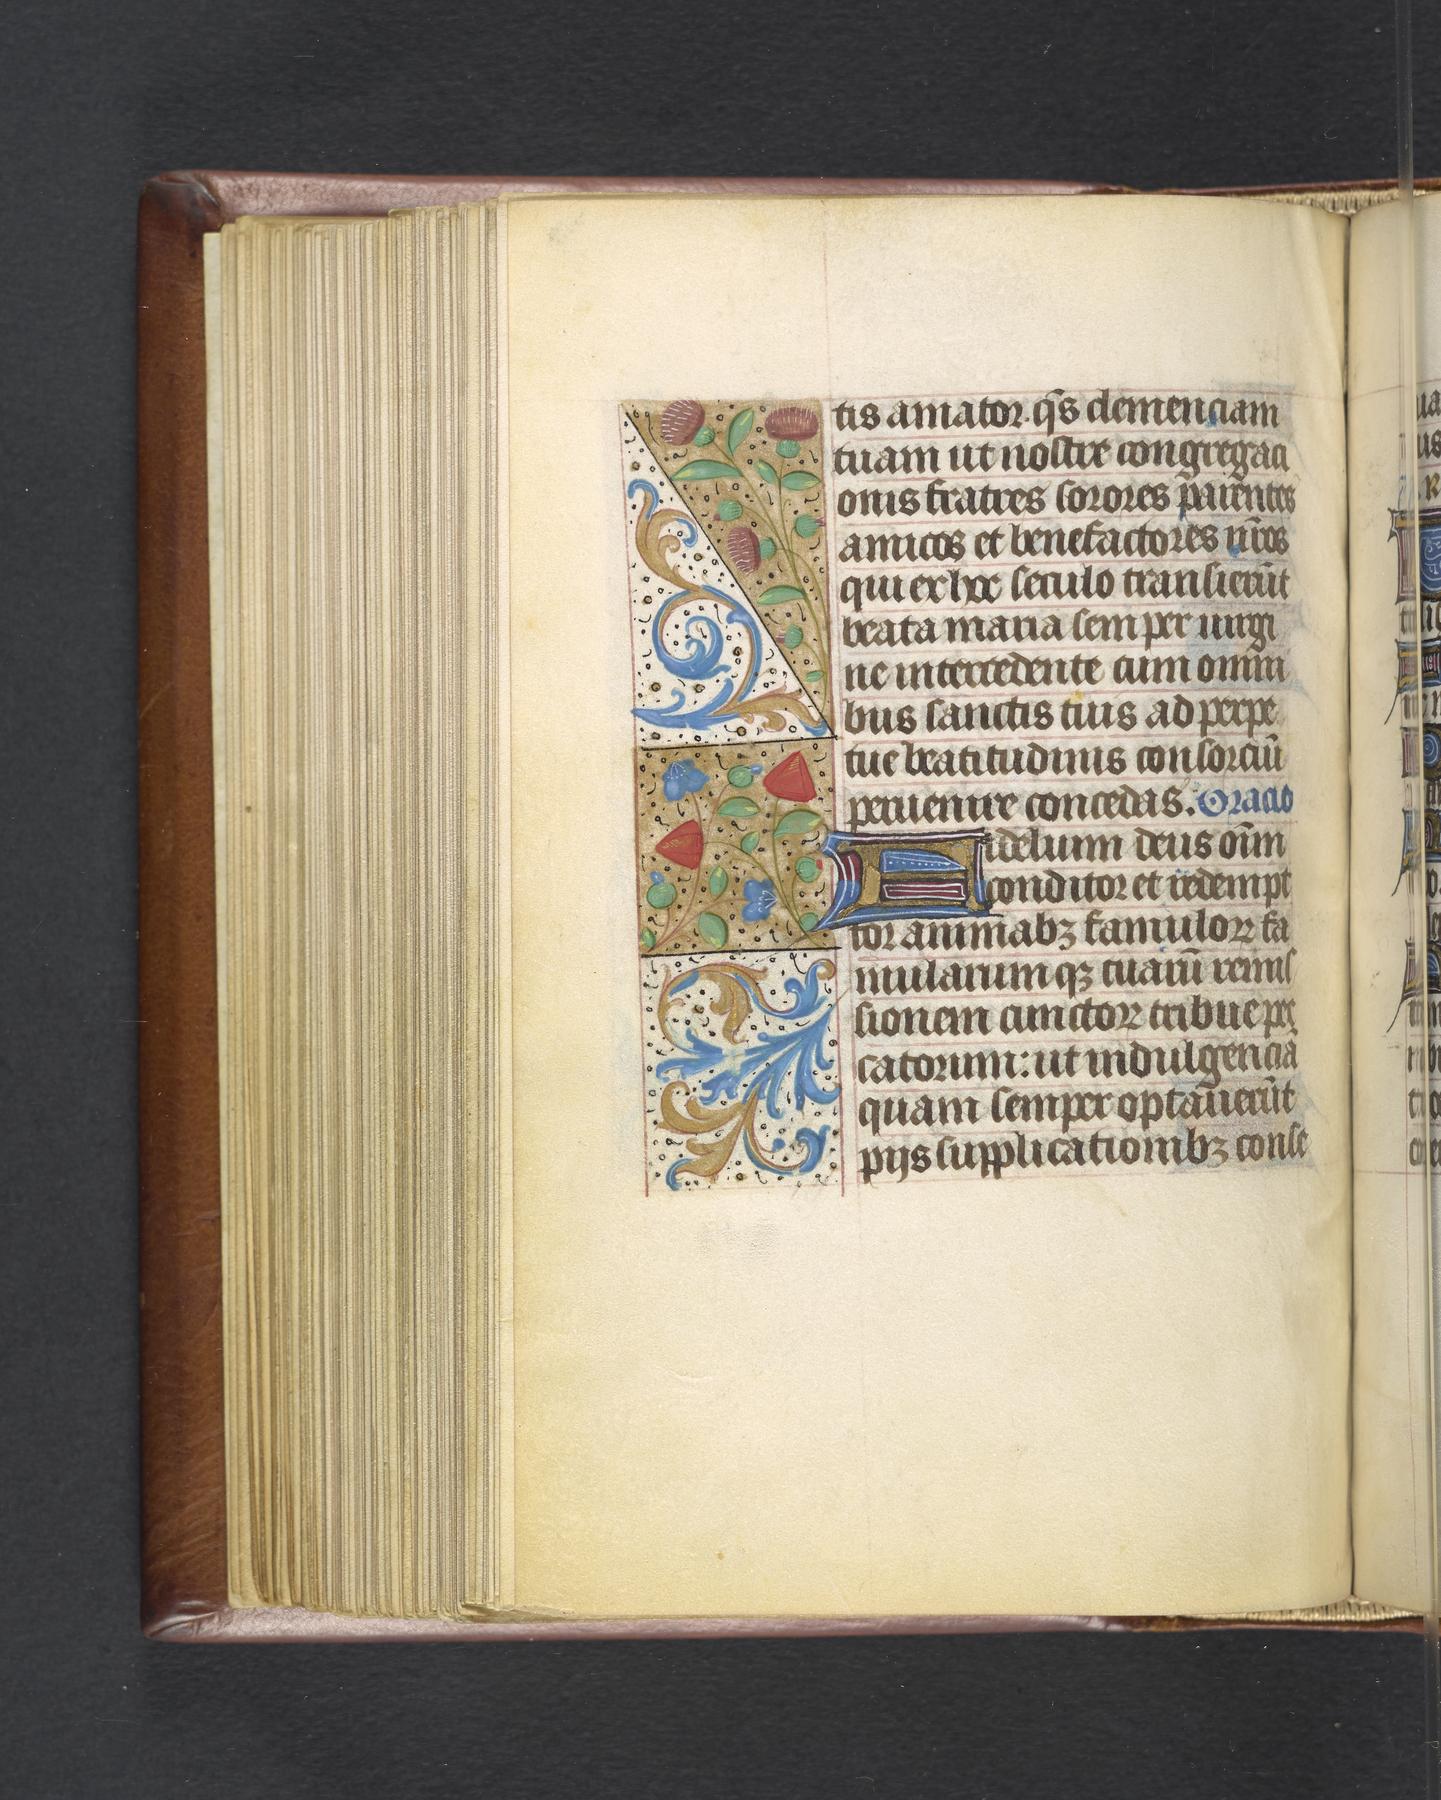 tis amator. q̄s clemenciam
tuam ut nostre congregaci
onis fratres sorores p̄arentes
amicos et benefactores nr̄os
qui ex hoc seculo transierūt
beata maria semper uirgi
ne intercedente cum omni
bus sanctis tuis ad perpe
tue beatitudinis consorciū
peruenire concedas. Oracio
Fidelium deus om̄
conditor et redempt
tor animabꝫ famuloꝝ fa
mularum qꝫ tuarū remis
sionem cunctoꝝ tribue pec
catorum: ut indulgenciā
quam semper optauerūt
pijs supplicationibꝫ conse